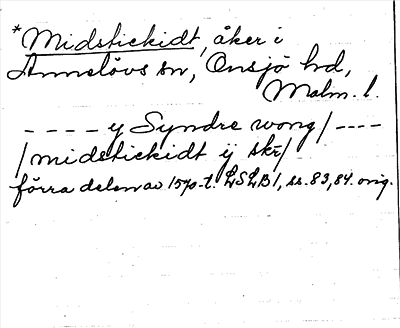 *Midstickidt, åker i
Annelövs sn, Onsjö hd,
Malm. l.
---- y Syndre wong/----
/midstickidt ij skr/
förra delen av 1570-t. LSLB 1, ss. 83, 84. orig.